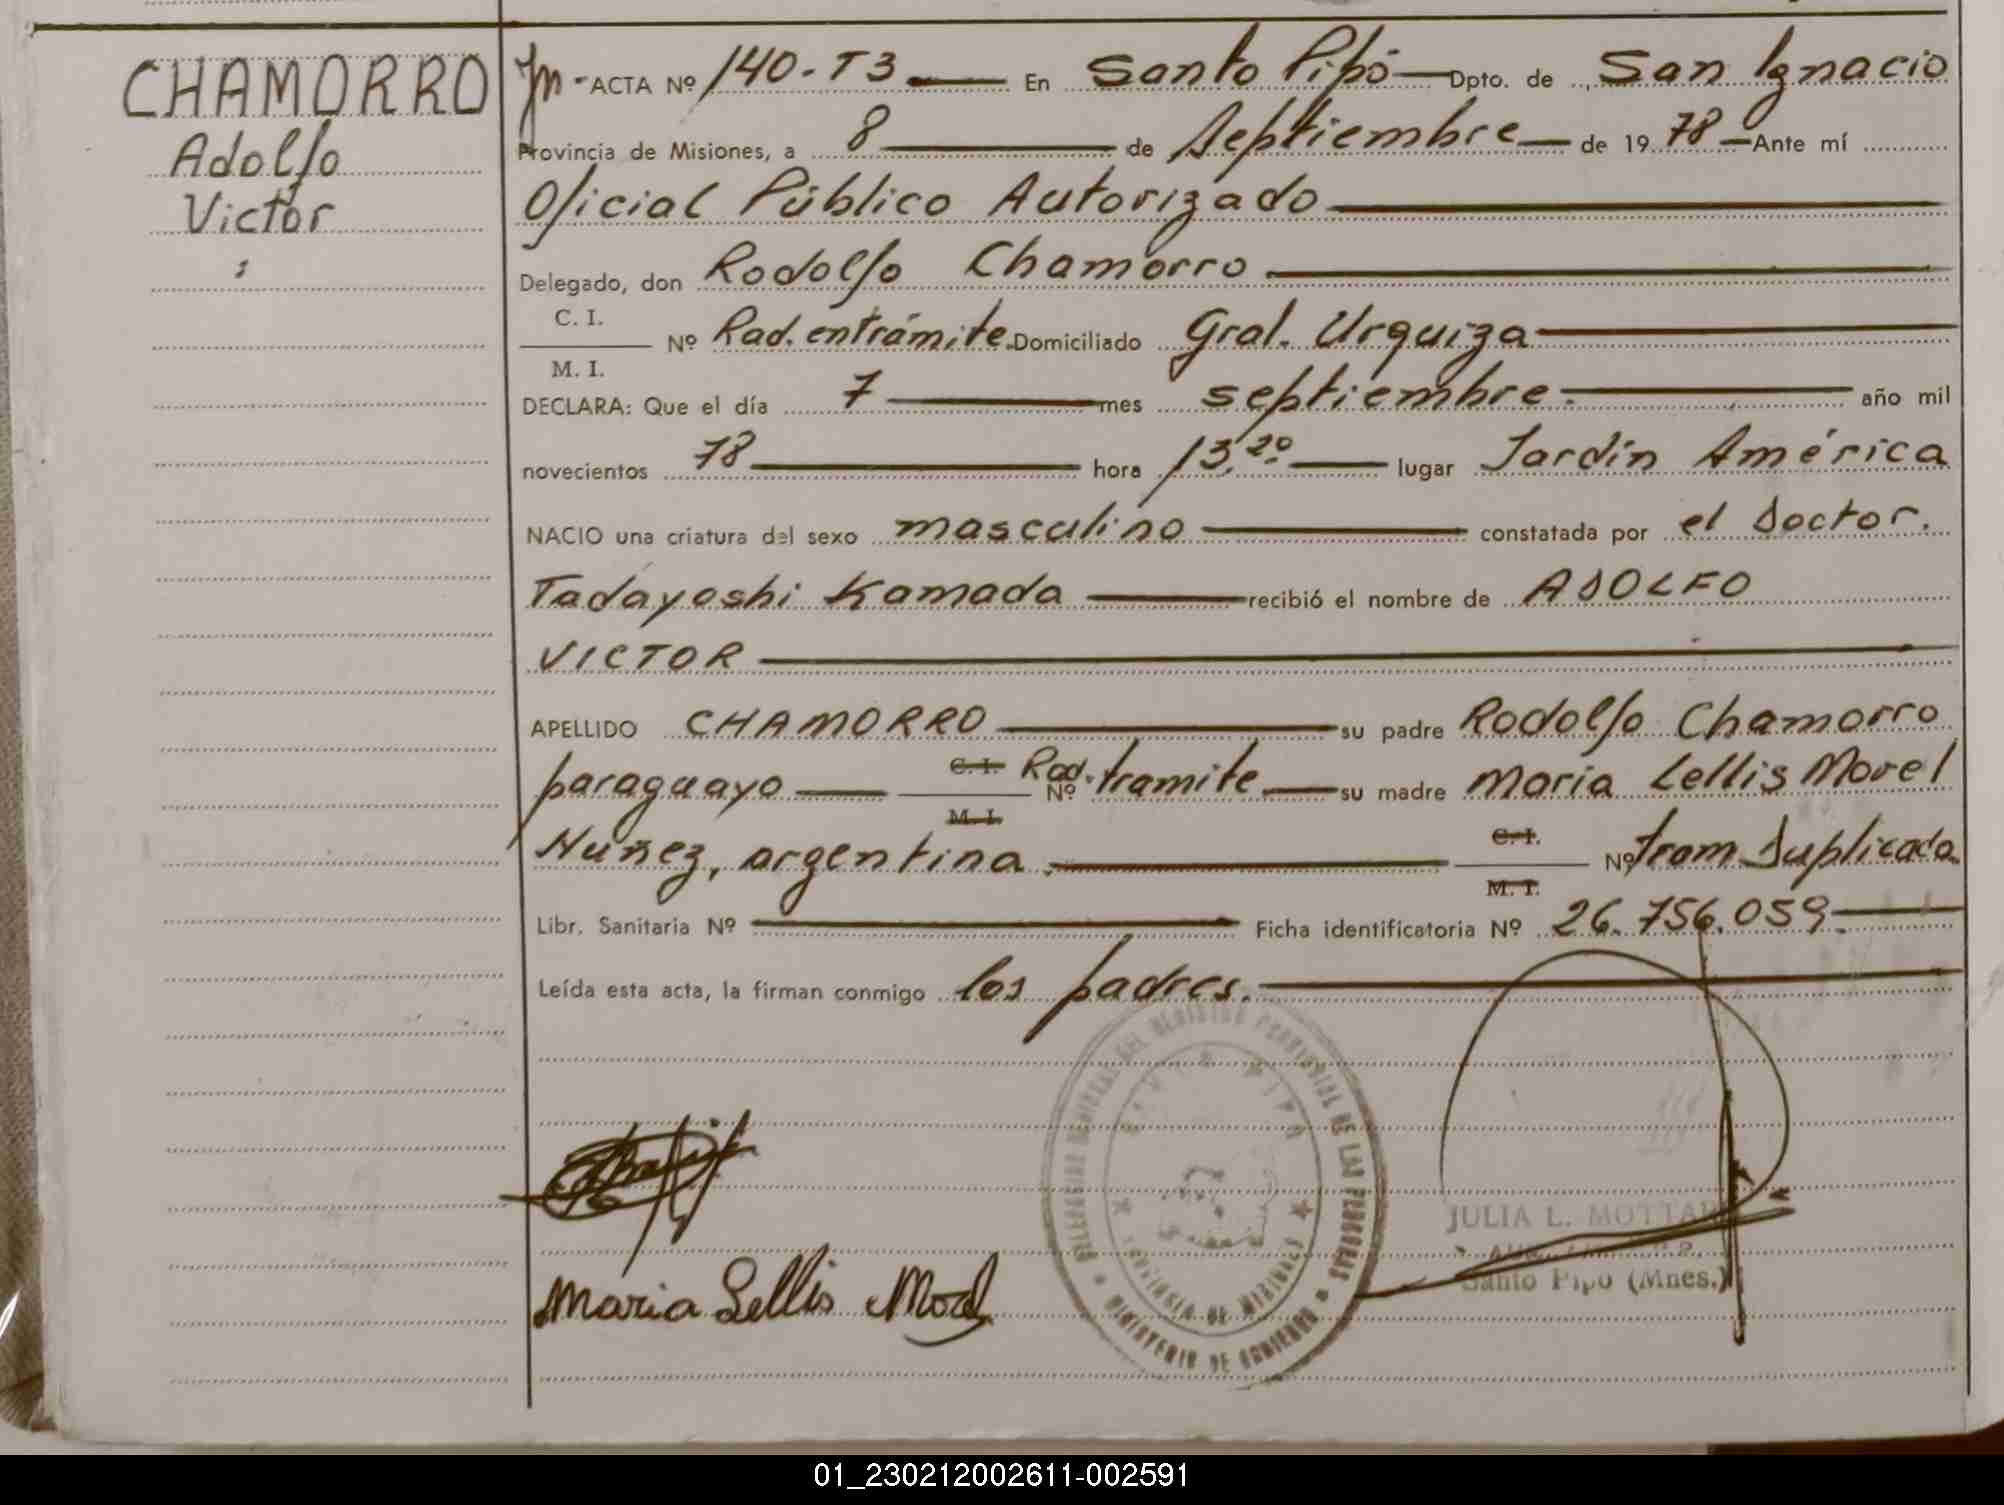 CHAMORRO
Adolfo
Victor
ACTA Nº 140-T3 En Santo Pipó Dpto. de San Ignacio
Provincia de Misiones, a 8 de Septiembre de 19 78 Ante mí
Oficial Público Autorizado
Delegado, don Rodolfo Chamorro
C. I.
M. I.
Nº Rad. entrámite. Domiciliado Gral. Urquiza
DECLARA: Que el día 7 mes septiembre. año mil
novecientos 78 hora 13,20. lugar Jardín América
NACIO una criatura del sexo masculino constatada por el Doctor.
Tadayoshi Kamada recibió el nombre de ADOLFO
VICTOR
APELLIDO CHAMORRO su padre Rodolfo Chamorro
paraguayo C. I. M. I. Nº Rad. tramite su madre Maria Lellis Morel
Nuñez, argentina C. I. M. I. Nº tram. Duplicado
Libr. Sanitaria Nº Ficha identificatoria Nº 26.756.059
Leída esta acta, la firman conmigo los padres.
DEL REGISTRO PROVINCIAL DE LAS PERSONAS
PROVINCIA DE MISIONES
MINISTERIO DE GOBIERNO
JULIA L.
Santo Pipo (Mnes.)
Maria Lellis Morel
01_230212002611-002591